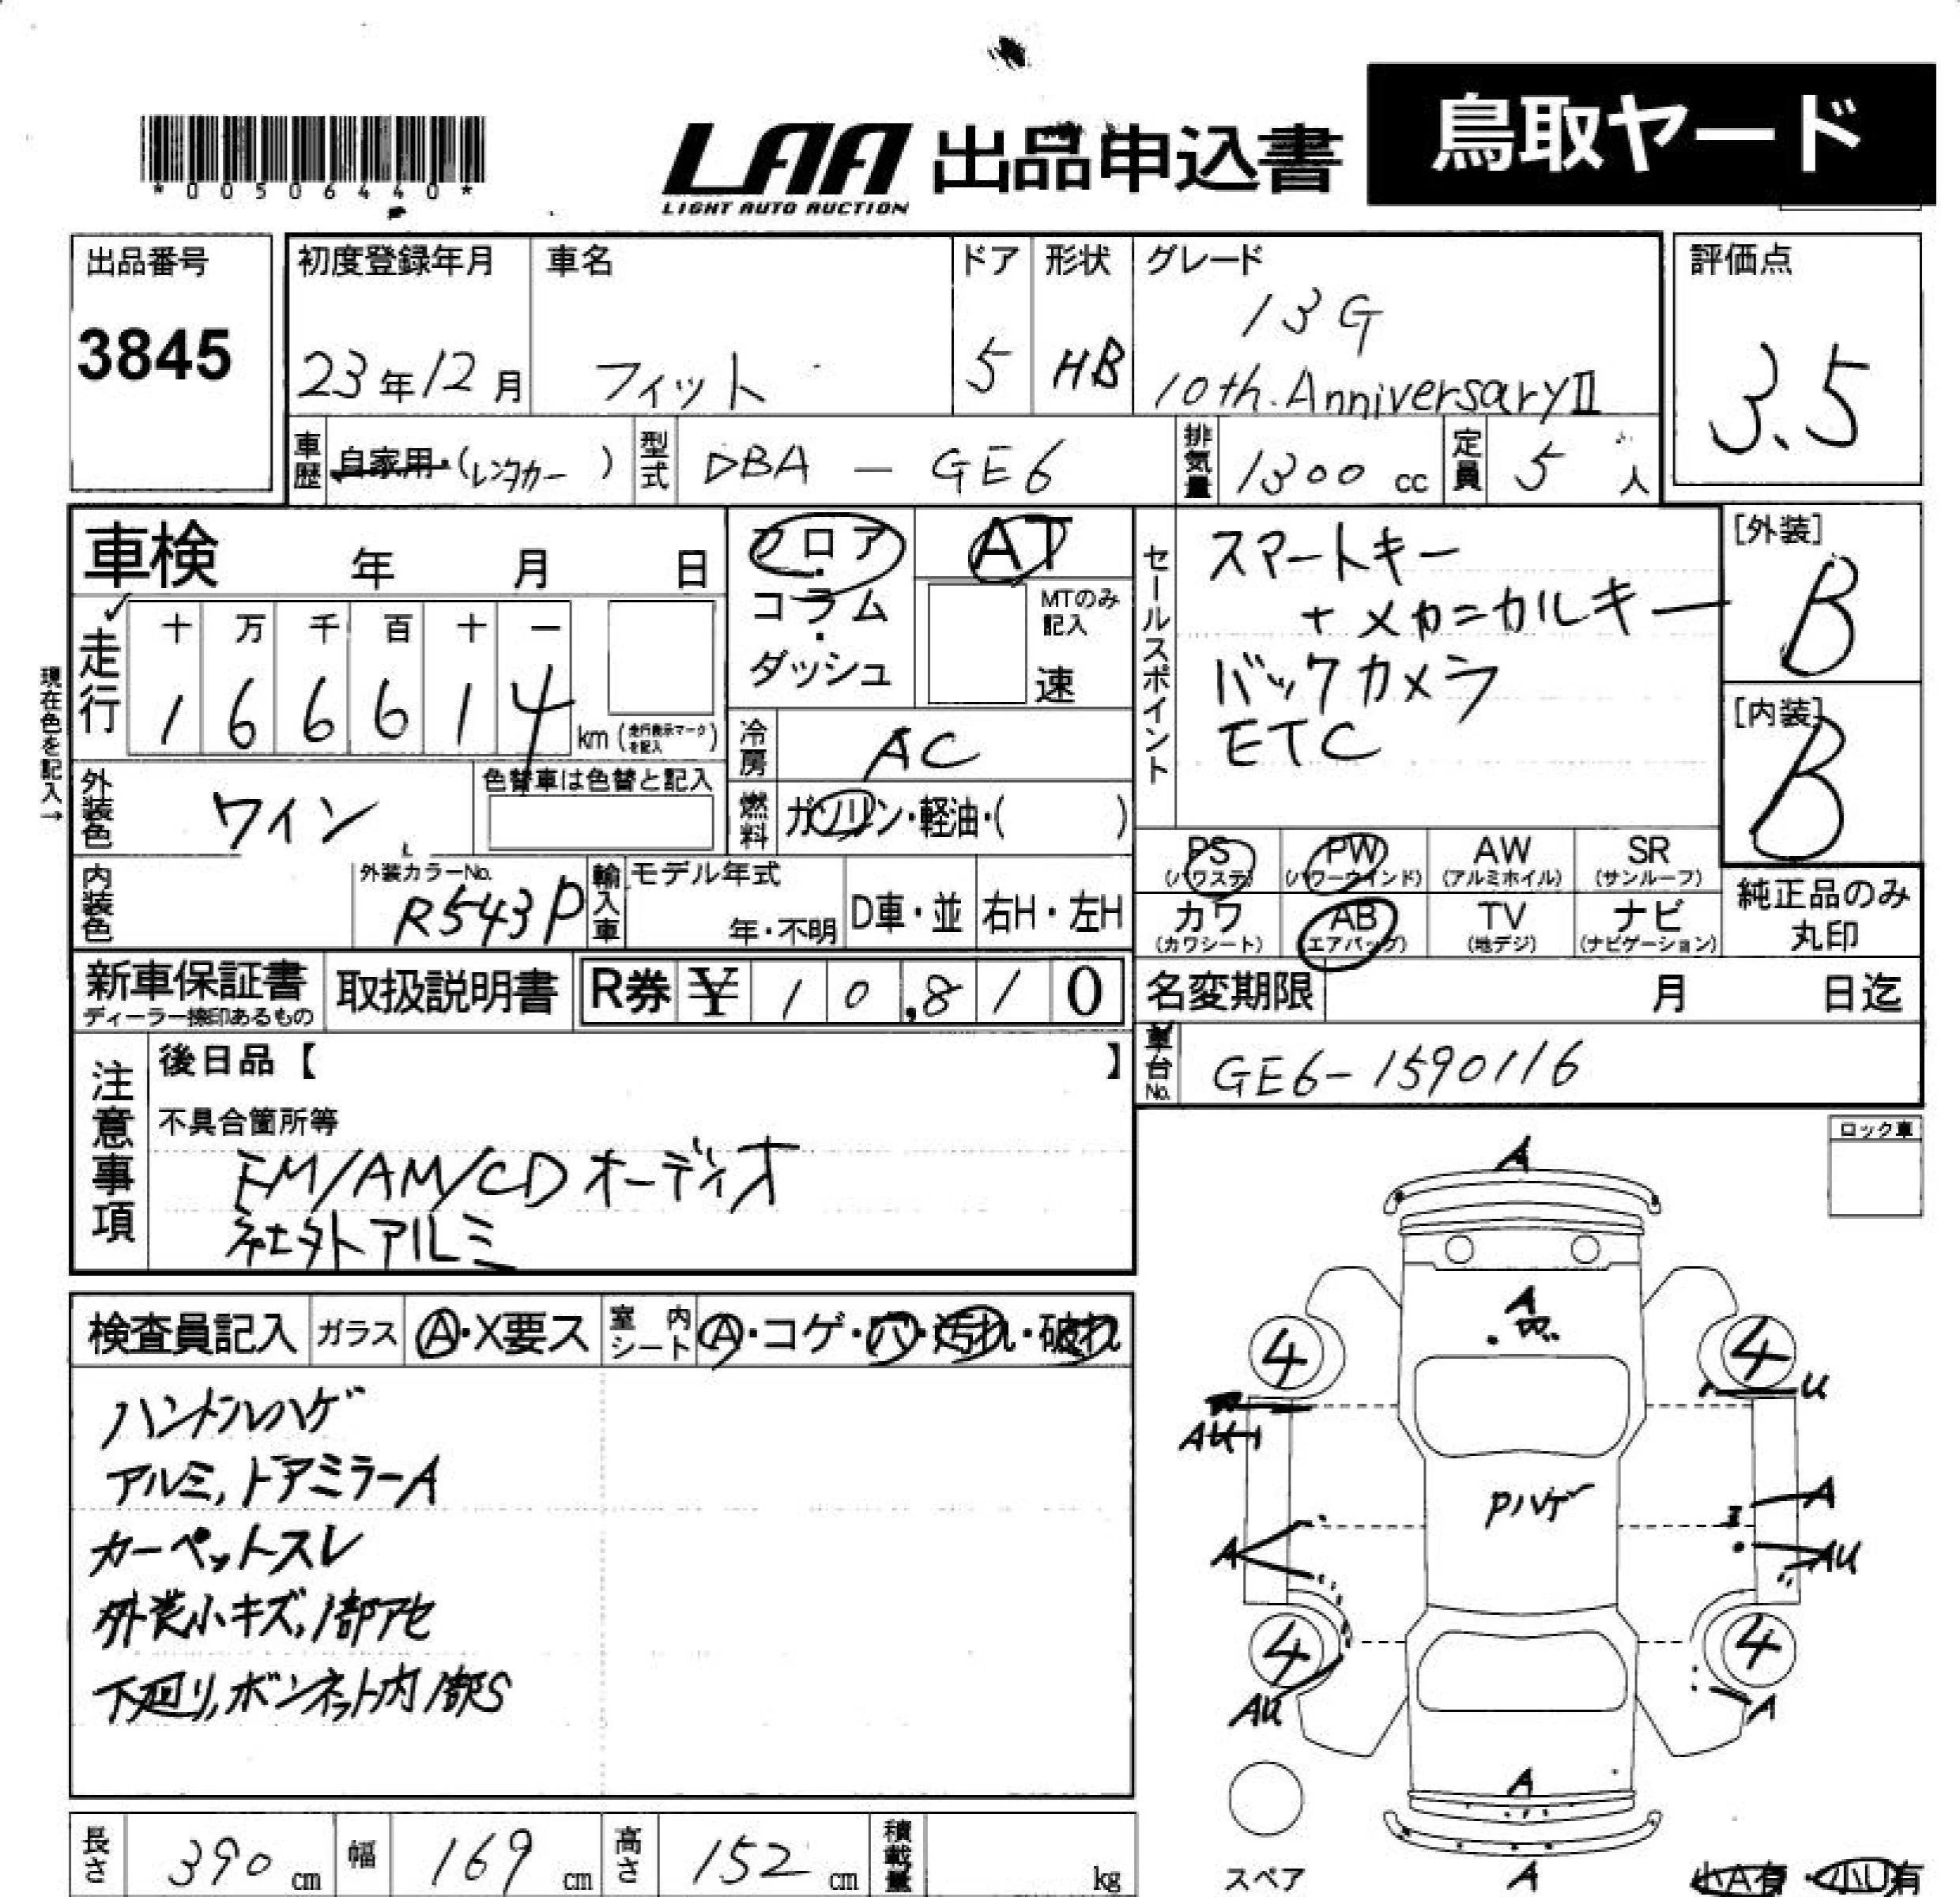 *00506440*
LAA LIGHT AUTO AUCTION 出品申込書 鳥取ヤード
出品番号
3845
初度登録年月
23年12月
車名
フィット
ドア
5
形状
HB
グレード
13G
10th.AnniversaryⅡ
評価点
3.5
車歴 自家用・(レンタカー)
型式 DBA-GE6
排気量 1300cc
定員 5人
車検 年 月 日
走行 十 万 千 百 十 一
1 6 6 6 1 4 km(走行表示マークを記入)
現在色を記入→
外装色 ワイン
色替車は色替と記入
内装色
外装カラーNo.
R543P
輸入車 モデル年式
年・不明
D車・並 右H・左H
フロア・コラム・ダッシュ
AT
MTのみ記入
速
冷房 AC
燃料 ガソリン・軽油・( )
セールスポイント
スマートキー
+メカニカルキー
バックカメラ
ETC
[外装]
B
[内装]
B
PS (パワステ) PW (パワーウインド) AW (アルミホイル) SR (サンルーフ)
カワ (カワシート) AB (エアバッグ) TV (地デジ) ナビ (ナビゲーション)
純正品のみ
丸印
新車保証書
ディーラー捺印あるもの
取扱説明書
R券 ¥ 10,810
名変期限 月 日迄
車台No. GE6-1590116
注意事項
後日品【 】
不具合箇所等
FM/AM/CDオーディオ
社外アルミ
検査員記入 ガラス A・X要ス 室内シート A・コゲ・穴・汚れ・破れ
ハンドルハゲ
アルミ,ドアミラーA
カーペットスレ
外装小キズ,1部アセ
下廻り,ボンネット内1部S
長さ 390cm 幅 169cm 高さ 152cm 積載量 kg
ロック車
A
A
4
4
U
AU
Pハゲ
A
A
AU
4
4
AU
A
A
スペア
A
小A有・小U有